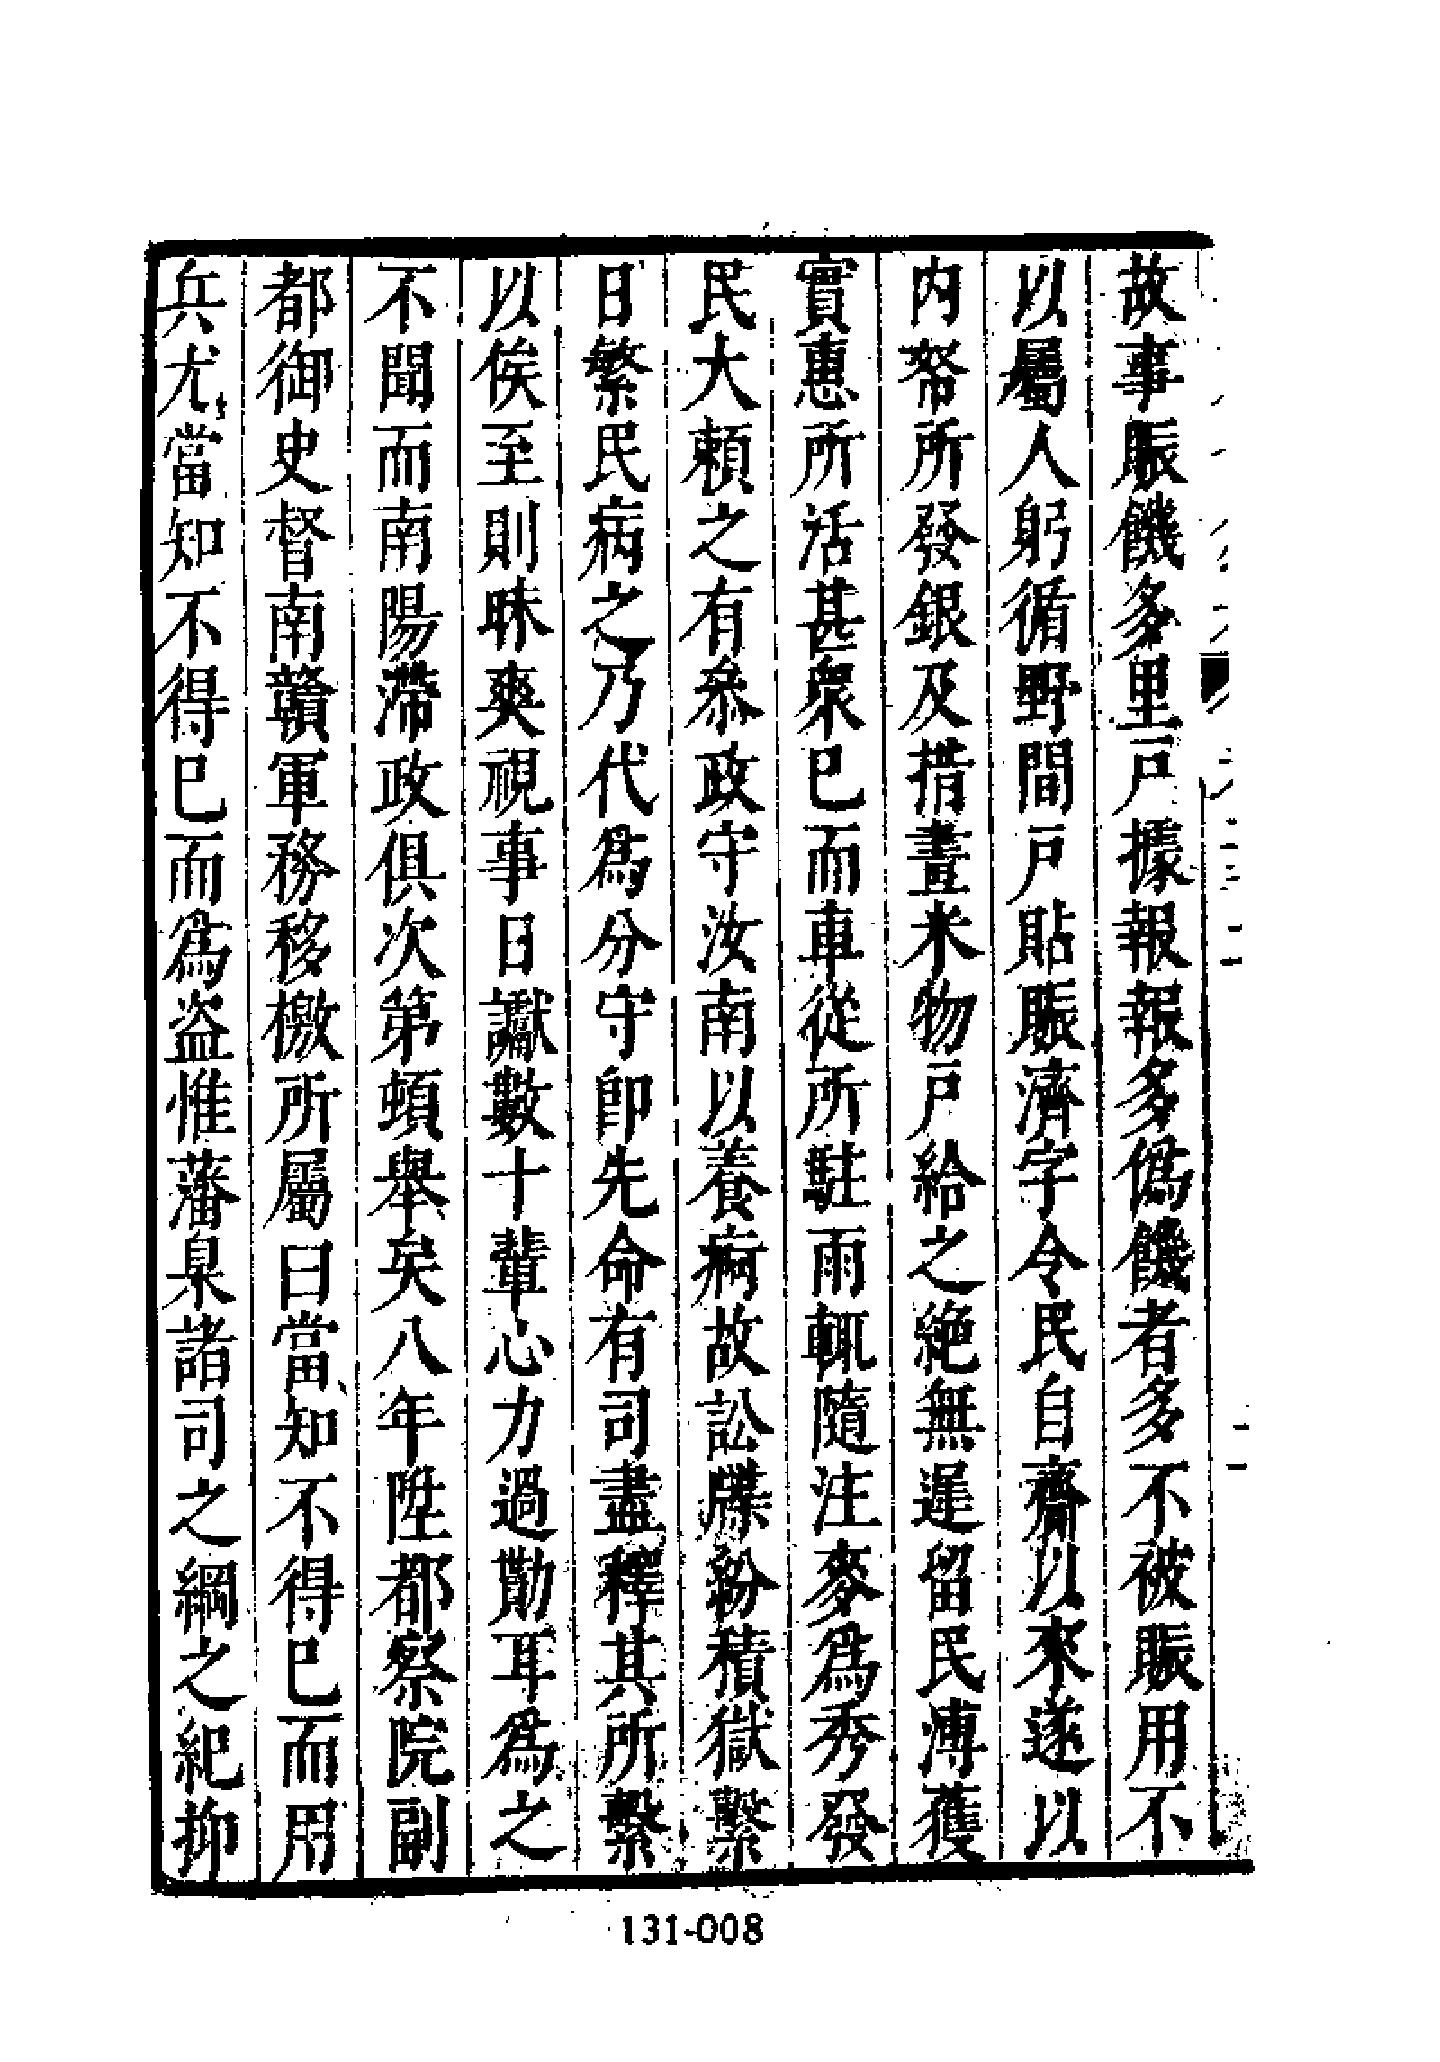 故事賑饑多里戶據報報多僞饑者多不被賑用不
以屬人躬循野間戶貼賑濟字令民自齎以來遂以
內帑所發銀及措晝米物戶給之絶無遲留民溥獲
實惠所活甚衆巳而車從所駐雨輒隨注麥爲秀發
民大賴之有叅政守汝南以養痾故訟牒紛積獄繫
日繁民病之乃代爲分守卽先命有司盡釋其所繫
以俟至則昧爽視事日讞數十輩心力過勩耳爲之
不聞而南陽滯政俱次第頓舉矣八年陞都察院副
都御史督南贛軍務移檄所屬曰當知不得巳而用
兵尤當知不得巳而爲盜惟藩臬諸司之綱之紀抑
131-008